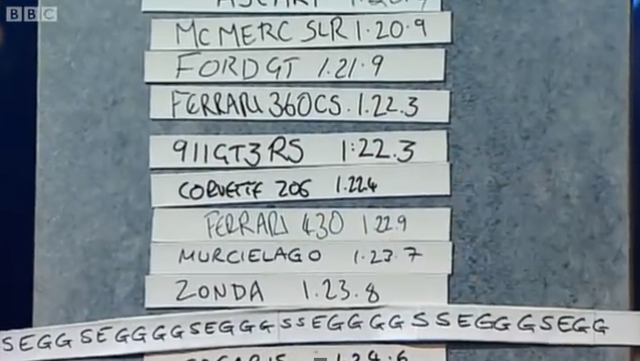 BBC
MC MERC SLR 1.20.9
FORD GT 1.21.9
FERRARI 360CS. 1.22.3
911GT3 RS 1:22.3
CORVETTE Z06 1.22.4
FERRARI 430 1 22.9
MURCIELAGO 1.23.7
ZONDA 1.23.8
SEGGSEGGGGSEGGGSSEGGGGSSEGGGSEGG